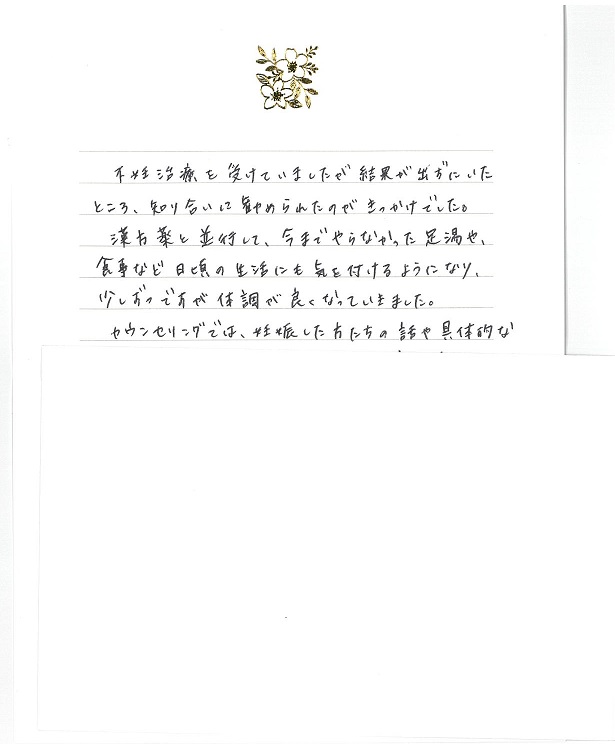 不妊治療を受けていましたが結果が出ずにいた
ところ、知り合いに勧められたのがきっかけでした。
漢方薬と並行して、今までやらなかった足湯や、
食事など日頃の生活にも気を付けるようになり、
少しずつですが体調が良くなっていきました。
カウンセリングでは、妊娠した方たちの話や具体的な